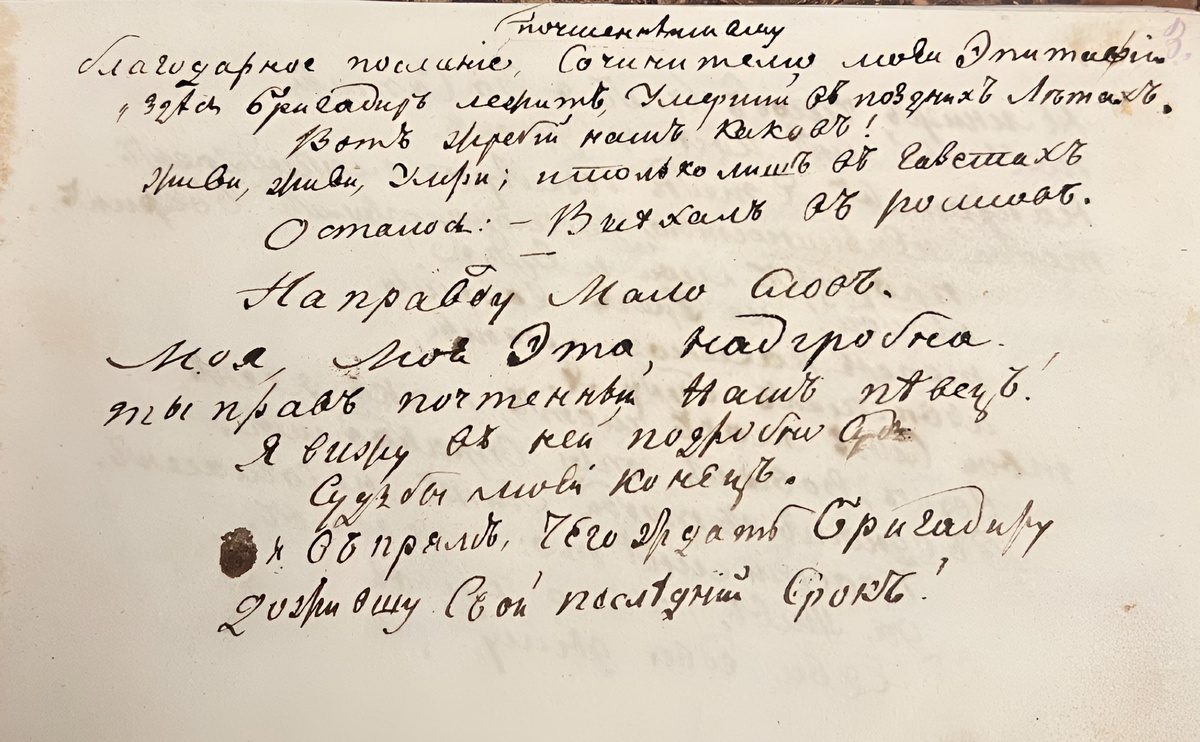 почтеннѣйшему
благодарное посланіе, Сочинителю моей Эпитафіи
"здѣсь бригадиръ лежитъ, Умершій въ поздныхъ Лѣтахъ.
Вотъ жребій нашъ каковъ!
Живи, живи, Умри; и только лишъ въ Гавѣтахъ
Осталось: – Выѣхалъ въ ростовъ.
На правду Мало Словъ.
Моя, Моя Эта, надгробна.
ты правъ почтенный Нашъ пѣвецъ!
Я вижу въ ней подробно
Судьбы моей конецъ.
и въ прямъ, Чего ждать Бригадиру
Дожившу Свой послѣдній Срокъ!